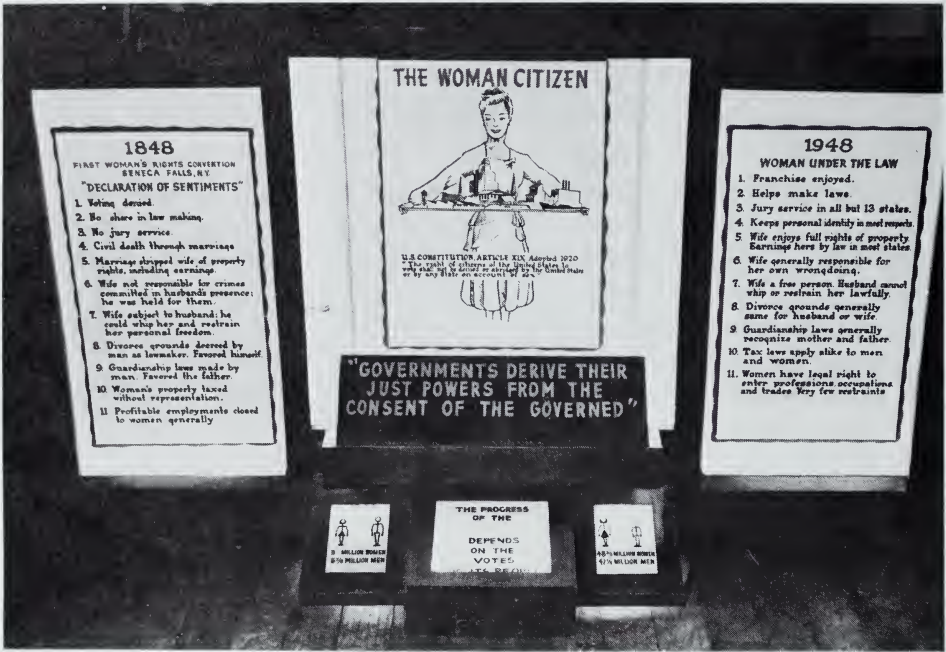 1848
FIRST WOMAN'S RIGHTS CONVENTION
SENECA FALLS, N.Y.
"DECLARATION OF SENTIMENTS"
1. Voting denied.
2. No share in law making.
3. No jury service.
4. Civil death through marriage
5. Marriage stripped wife of property
rights, including earnings.
6. Wife not responsible for crimes
committed in husband's presence;
he was held for them.
7. Wife subject to husband; he
could whip her and restrain
her personal freedom.
8. Divorce grounds decreed by
man as lawmaker. Favored himself.
9. Guardianship laws made by
man. Favored the father.
10. Woman's property taxed
without representation.
11 Profitable employments closed
to women generally
THE WOMAN CITIZEN
U.S. CONSTITUTION, ARTICLE XIX Adopted 1920
"The right of citizens of the United States to
vote shall not be denied or abridged by the United States
or by any State on account of sex."
"GOVERNMENTS DERIVE THEIR
JUST POWERS FROM THE
CONSENT OF THE GOVERNED"
1948
WOMAN UNDER THE LAW
1. Franchise enjoyed.
2. Helps make laws.
3. Jury service in all but 13 states.
4. Keeps personal identity in most respects.
5. Wife enjoys full rights of property
Earnings hers by law in most states.
6. Wife generally responsible for
her own wrongdoing.
7. Wife a free person. Husband cannot
whip or restrain her lawfully.
8. Divorce grounds generally
same for husband or wife.
9. Guardianship laws generally
recognize mother and father.
10. Tax laws apply alike to men
and women.
11. Women have legal right to
enter professions, occupations
and trades. Very few restraints
MILLION WOMEN
MILLION MEN
THE PROGRESS
OF THE
DEPENDS
ON THE
VOTES
MILLION WOMEN
MILLION MEN